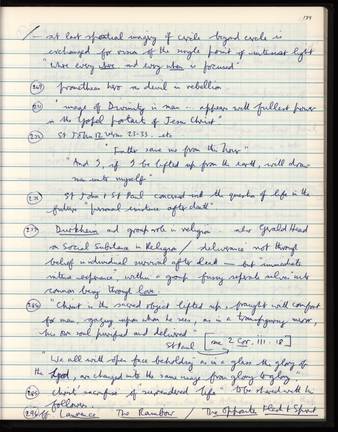 139
at last spatial imagery of circle beyond circle is
exchanged for vision of the single point of intensest light
"Where every where and every when is focused"
Promethean hero as devil in rebellion
"image of Divinity in man .. appears with fullest power
in the Gospel portrait of Jesus Christ"
St John 12 verses 23-33. etc
"Father save me from this hour"
"And I, if I be lifted up from the earth, will draw
men unto myself"
St John & St Paul concerned with the question of life in the
"personal existence after death"
Durkheim and group role in religion also Gerald Heard
in Social Substance in Religion / deliverance not through
belief in individual survival after death — but 'immediate
within a group - fusing separate selves into
common being through love
"Christ is the sacred object lifted up, fraught with comfort
for man, gazing upon whom he sees, as in a transfiguring mirror,
his own soul purified and delivered"
St Paul [2 Cor. III. 18]
"We all with open face beholding as in a glass the glory of
the Lord, are changed into the same image from glory to glory,
Christ' sacrifice of "surrendered life" to be shared with his
followers.
Lawrence The Rainbow /